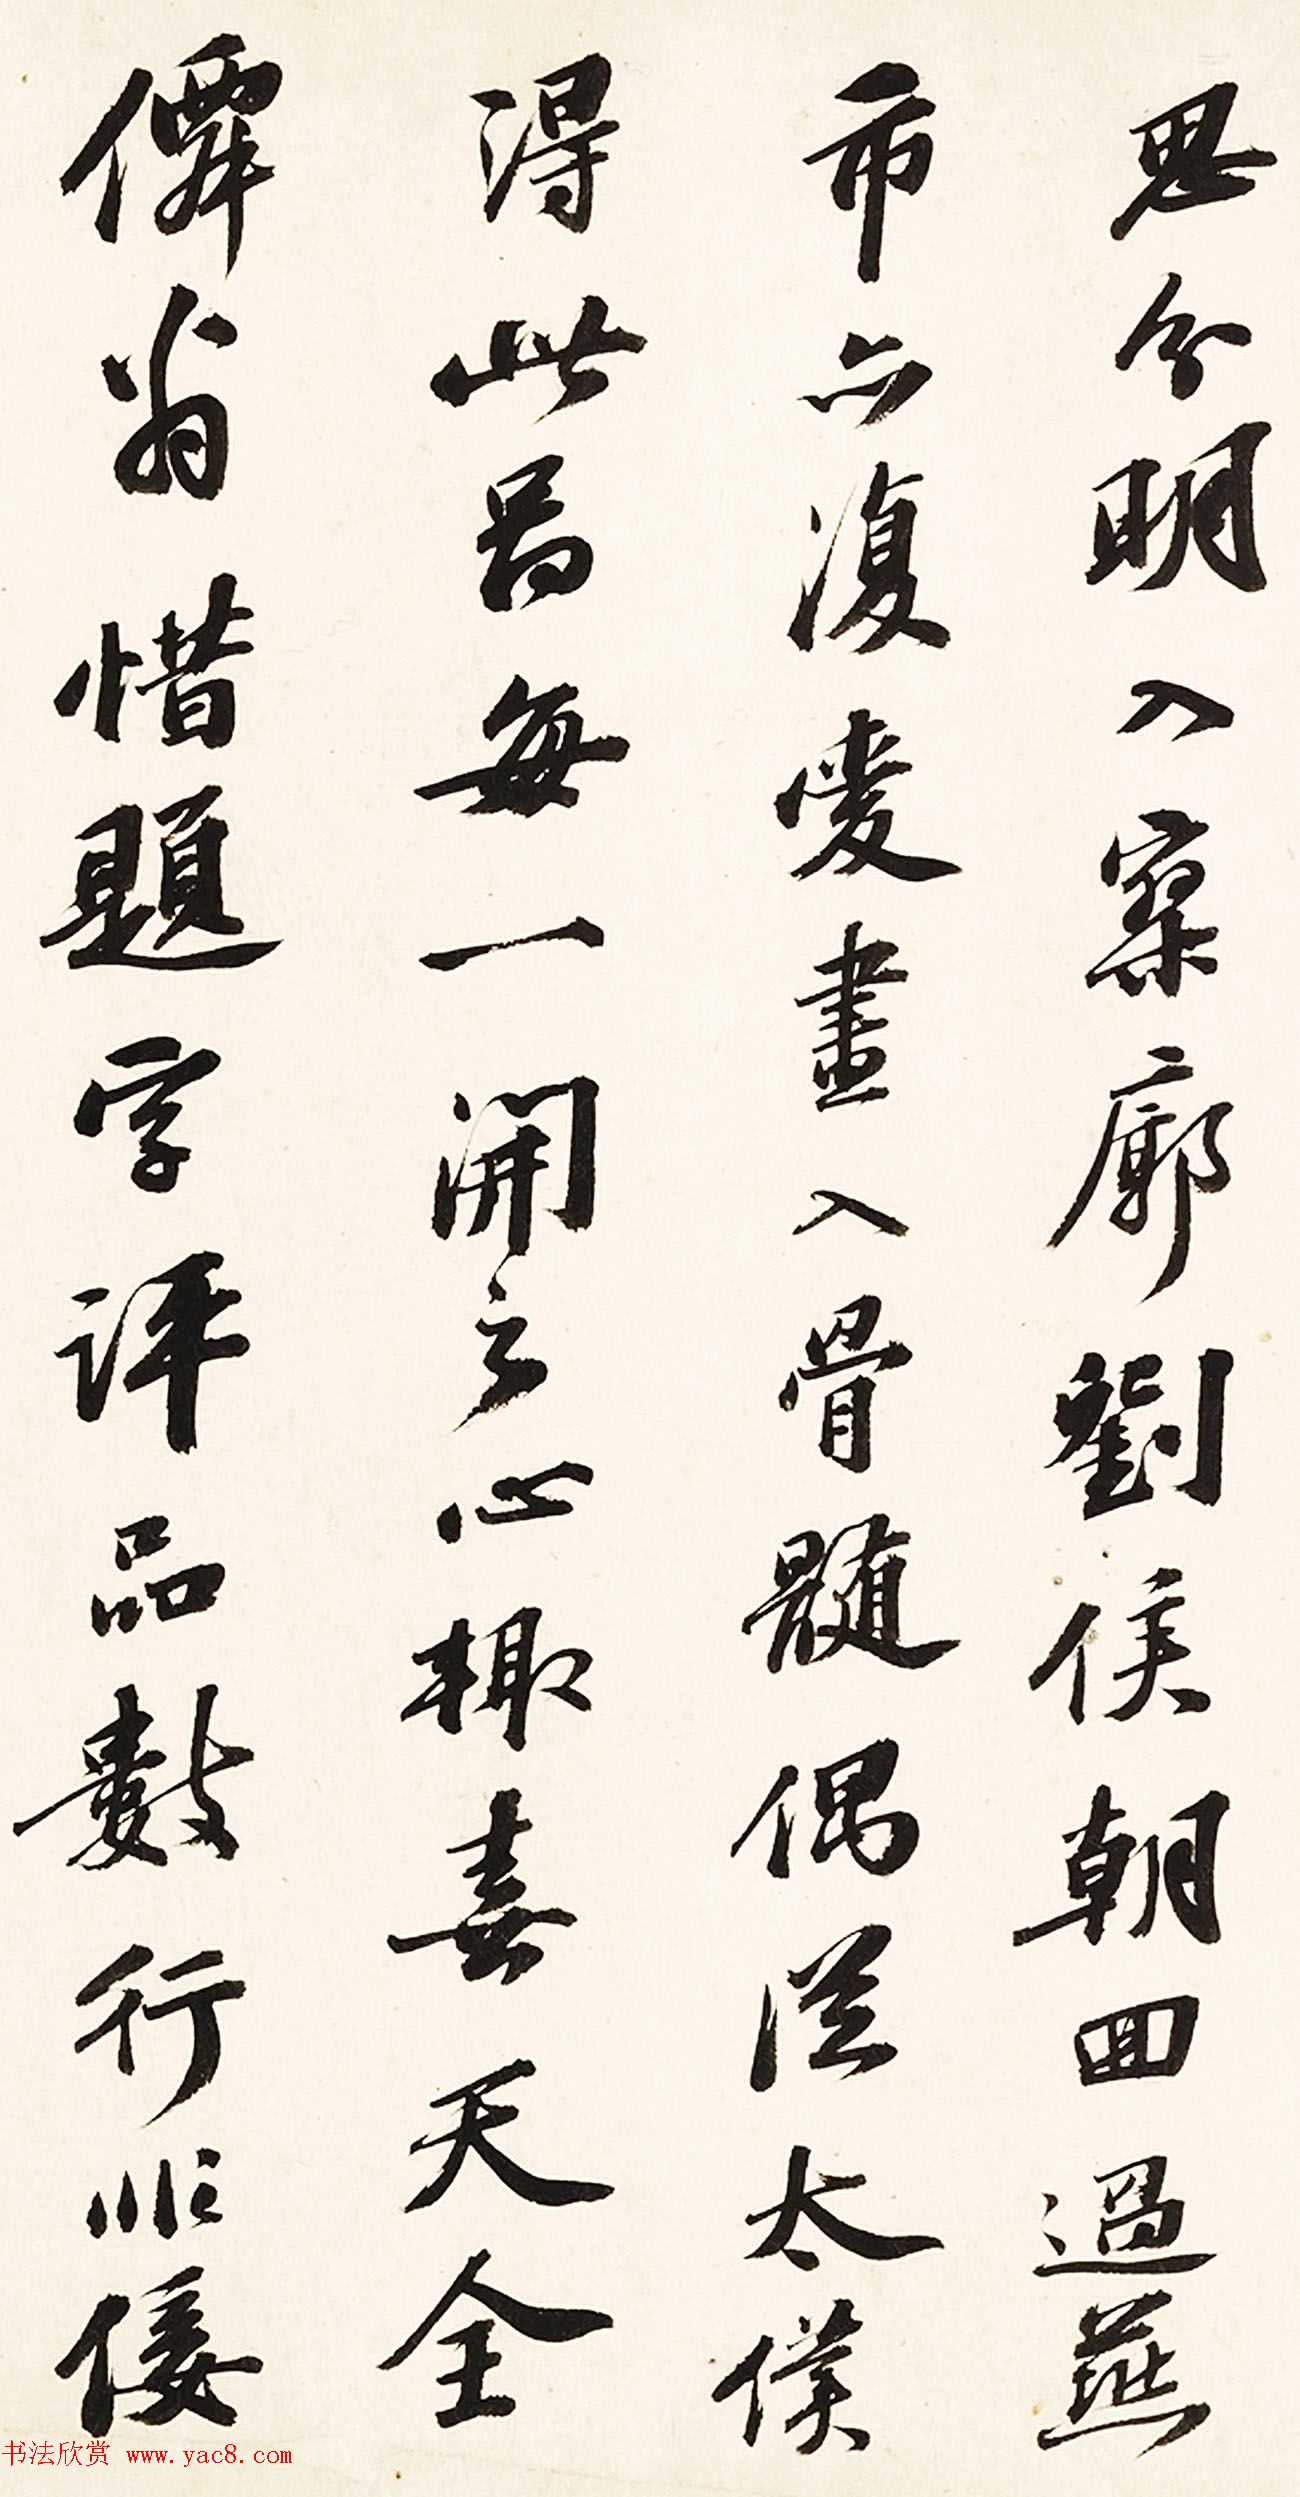 思分明入寥廓劉侯朝回過燕
市六復愛畫入骨髓偶從太僕
得此圖每一開之心輒喜天全
僊翁惜題字評品數行非倭
书法欣赏 www.yac8.com